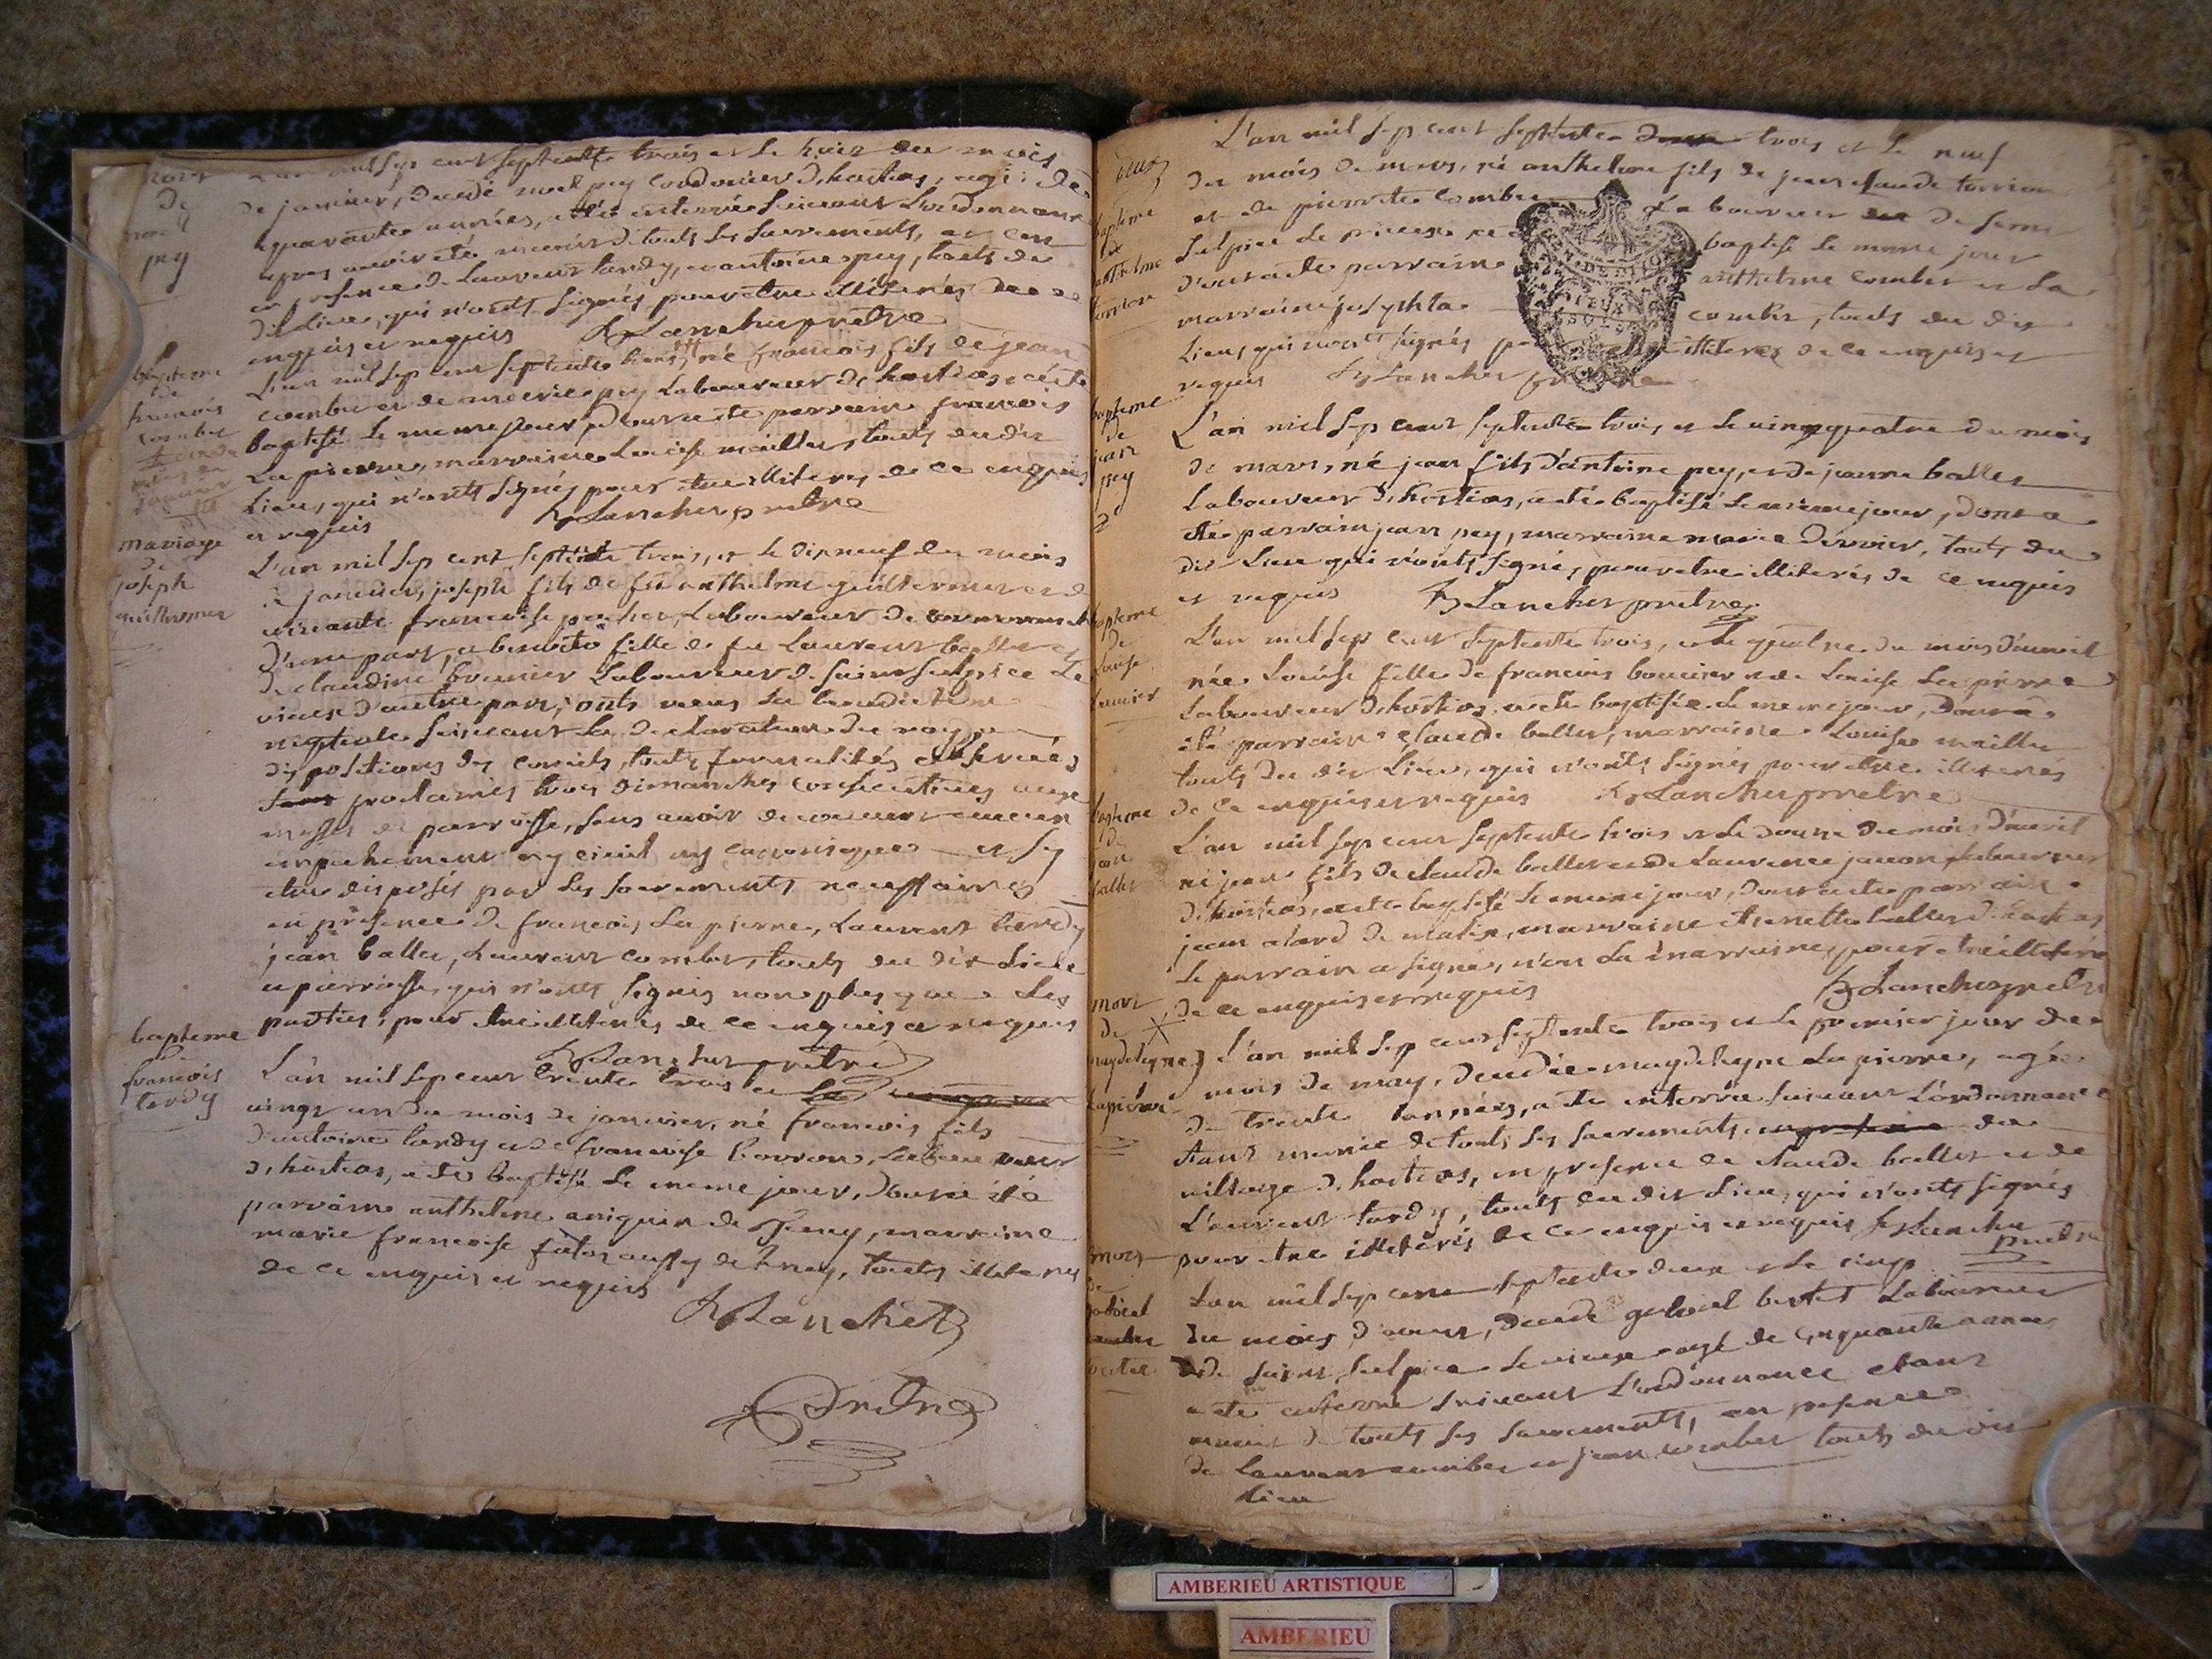 mort
de
noel
pey
L'an mil sep cent septente trois et le huit du mois
de janvier, decedé noel pey cordonier d'hostias, agé de
quarante années, a été enterré suivant l'ordonnance
apres avoir été munis de touts les sacrements, et ce
en presence de Laurent tardy, et antoine pey, touts du
dit lieu, qui n'onts signés pour etre illiterés de ce
enquis et requis Blanchet pretre
bapteme
de
francois
combet
L'an mil sep cent septente trois, né francois fils de jean
combet et de marie pey Laboureur d'hostias, a été
baptisé le meme jour, dont a été parrain francois
La pierre, marraine Louise meiller, touts du dit
Lieu, qui n'onts signés pour etre illiteres de ce enquis
et requis Blanchet pretre
mariage
de
joseph
guillermet
L'an mil sep cent septente trois, et le dix neuf du mois
de janvier, joseph fils de feu anthelme guillermet et de
vivante francoise pochet, Laboureur de
d'une part, et benoite fille de feu Laurent ballet et
de claudine brunier Laboureur de saint sulpice le
vieux d'autre part, onts receus la benediction
nuptiale suivant la declaration du roy,
dispositions des conciles, touts formalités observées
proclamés trois dimanches consecutives aux
messes de parroisse, sans avoir decouvert aucun
empechement ny civil ny canonique et s'y
etre disposés par les sacrements necessaires
en presence de francois La pierre, Laurent tardy
jean ballet, Laurent combet, touts du dit lieu
et parroisse, qui n'onts signés non plus que les
parties, pour etre illiterés de ce enquis et requis
Blanchet pretre
bapteme
de
francois
tardy
L'an mil sep cent trente trois et le
vingt un du mois de janvier, né francois fils
d'antoine tardy et de francoise bovron, Laboureur
d'hostias, a été baptisé le meme jour, dont a été
parrain anthelme aniquin de , marraine
marie francoise aussy de , touts illiterés
de ce enquis et requis
Blanchet
Pretre
L'an mil sep cent septente deux trois et le neuf
du mois de mars, né anthelme fils de jean claude torrion
bapteme
de
anthelme
torrion
et de pierrete combet Laboureur de saint
sulpice le vieux, a été baptisé le meme jour
dont a été parrain anthelme combet et la
marraine josephta combet, touts du dit
Lieu, qui n'onts signés pour etre illiterés de ce enquis et
requis Blanchet pretre
bapteme
de
jean
pey
2
L'an mil sep cent septente trois et le vingt quatre du mois
de mars, né jean fils d'antoine pey, et de jeanne ballet
Laboureur d'hostias, a été baptisé le meme jour, dont a
été parrain jean pey, marraine marie dervier, touts du
dit Lieu qui n'onts signés, pour etre illiterés de ce enquis
et requis Blanchet pretre
bapteme
de
Louise
L'an mil sep cent septente trois, et le quatre du mois d'avril
née Louise fille de francois bouvier et de Louise La pierre
Laboureur d'hostias, a été baptisée le meme jour, dont a
été parrain claude ballet, marraine Louise meiller
touts du dit Lieu, qui n'onts signés pour etre illiterés
de ce enquis et requis Blanchet pretre
bapteme
de
jean
ballet
L'an mil sep cent septente trois et le douze du mois d'avril
né jean fils de claude ballet et de Laurence javon Laboureur
d'hostias, a été baptisé le meme jour, dont a été parrain
jean alard de matix, marraine etienette ballet d'hostias
le parrain a signé, non la marraine, pour etre illiterée
de ce enquis et requis Blanchet pretre
mort
de
magdeleyne
Lapierre
L'an mil sep cent septente trois et le premier jour du
mois de may, decedée magdeleyne La pierre, agée
de trente années, a été enterrée suivant l'ordonnance
etant munie de touts les sacrements du
village d'hostias, en presence de claude ballet et de
Laurent tardy, touts du dit Lieu, qui n'onts signés
pour etre illiterés de ce enquis et requis Blanchet pretre
mort
de
gabriel
bertet
L'an mil sep cent septente deux et le cinq
du mois d'aout, decedé gabriel bertet Laboureur
de saint sulpice le vieux agé de cinquante années
a été enterré suivant l'ordonnance etant
munit de touts les sacrements, en presence
de Laurent combet et jean combet touts du dit
Lieu
AMBERIEU ARTISTIQUE
AMBERIEU